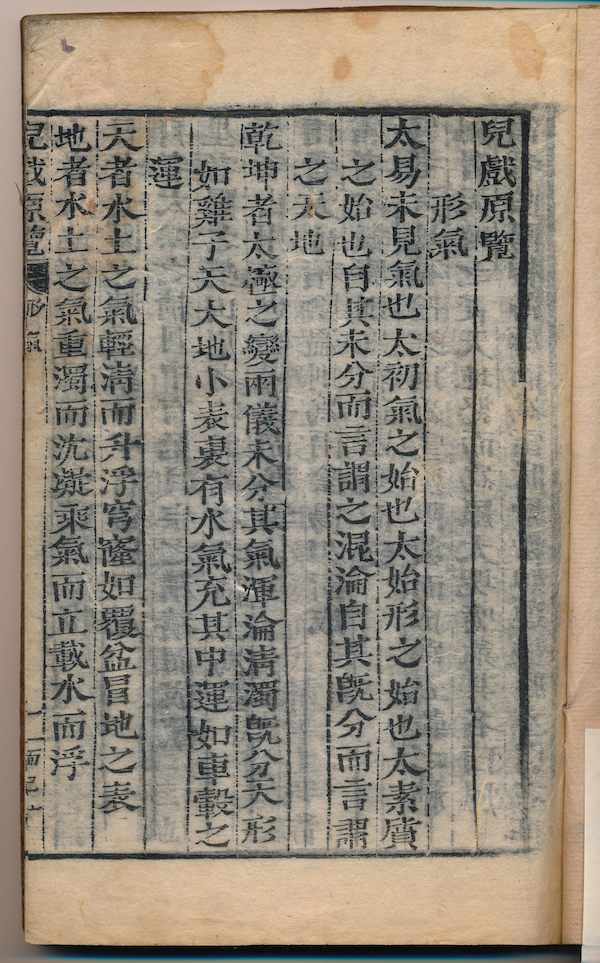 兒戲原覽
形氣
太易未見氣也太初氣之始也太始形之始也太素質
之始也自其未分而言謂之混淪自其旣分而言謂
之天地
乾坤者太極之變兩儀未分其氣渾淪淸濁旣分天形
如雞子天大地小表裏有水氣充其中運如車轂之
運
天者水土之氣輕淸而升浮穹窿如覆盆冒地之表
地者水土之氣重濁而沈凝乘氣而立載水而浮
兒戲原覽 形氣 一